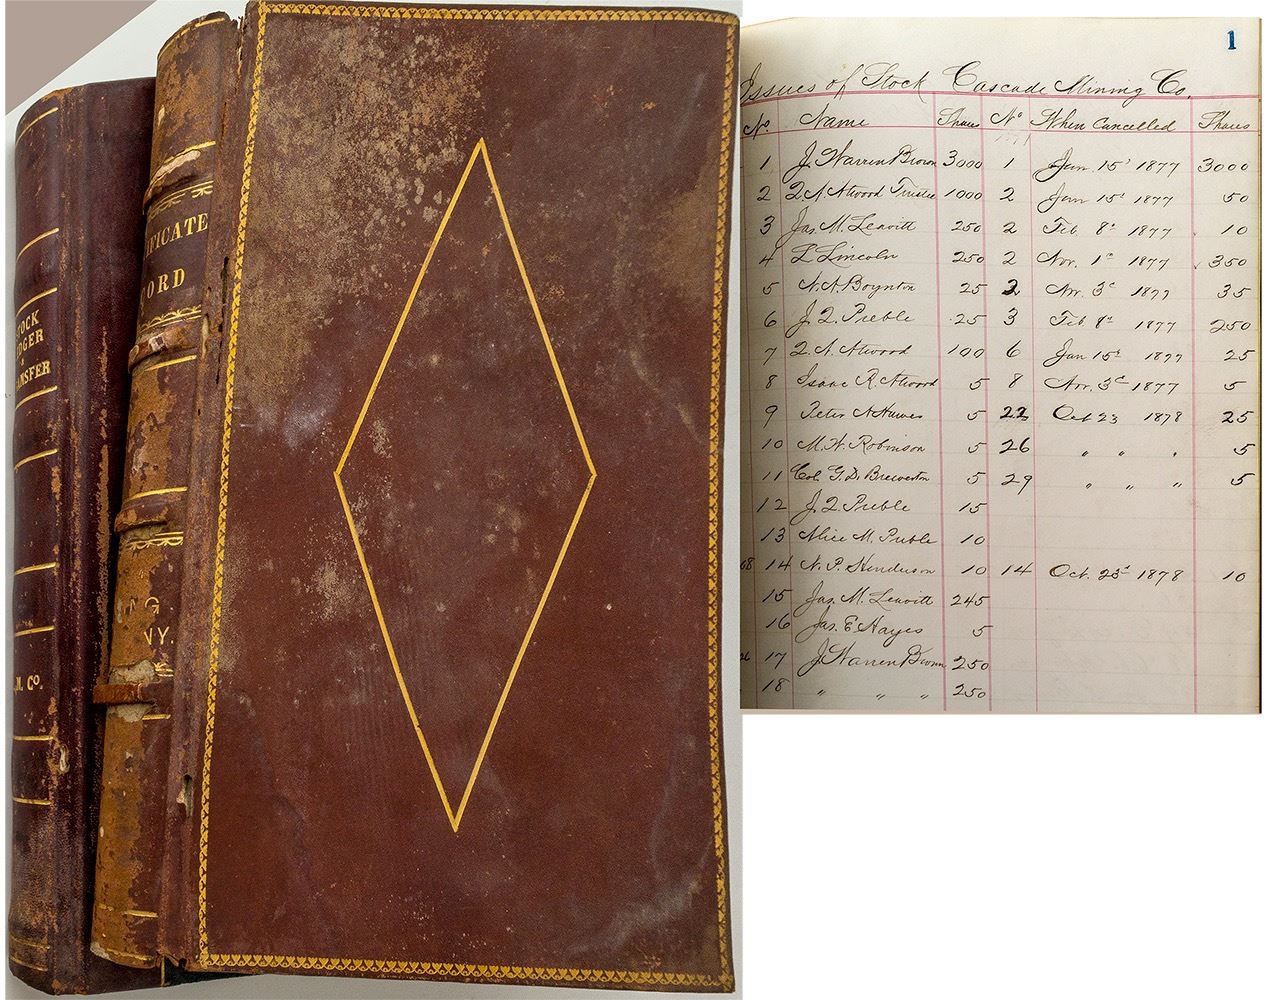 OCK
DGER
&
ANSFER
M. Co.
IFICATE
CORD
NG
NY.
1
Issues of Stock Cascade Mining Co.
No. Name Shares No When Cancelled Shares
1 J. Warren Brown 3000 1 Jan 15' 1877 3000
2 Atwood Trustee 1000 2 Jan 15' 1877 50
3 Jas. M. Leavitt 250 2 Feb 8" 1877 10
4 L Lincoln 250 2 Nov. 1" 1877 350
5 N. N. Boynton 25 2 Nov. 3d 1877 35
6 J. Q. Preble 25 3 Feb 8" 1877 250
7 Atwood 100 6 Jan 15" 1877 25
8 Isaac R. Atwood 5 8 Nov. 3d 1877 5
9 Peter 5 22 Oct 23 1878 25
10 M. W. Robinson 5 26 " " " 5
11 Col. G. D. Brewerton 5 29 " " " 5
12 J. Q. Preble 15
13 Alice M. Preble 10
08 14 N. P. Henderson 10 14 Oct. 23d 1878 10
15 Jas. M. Leavitt 245
16 Jas. E Hayes 5
26 17 J. Warren Brown 250
18 " " " 250